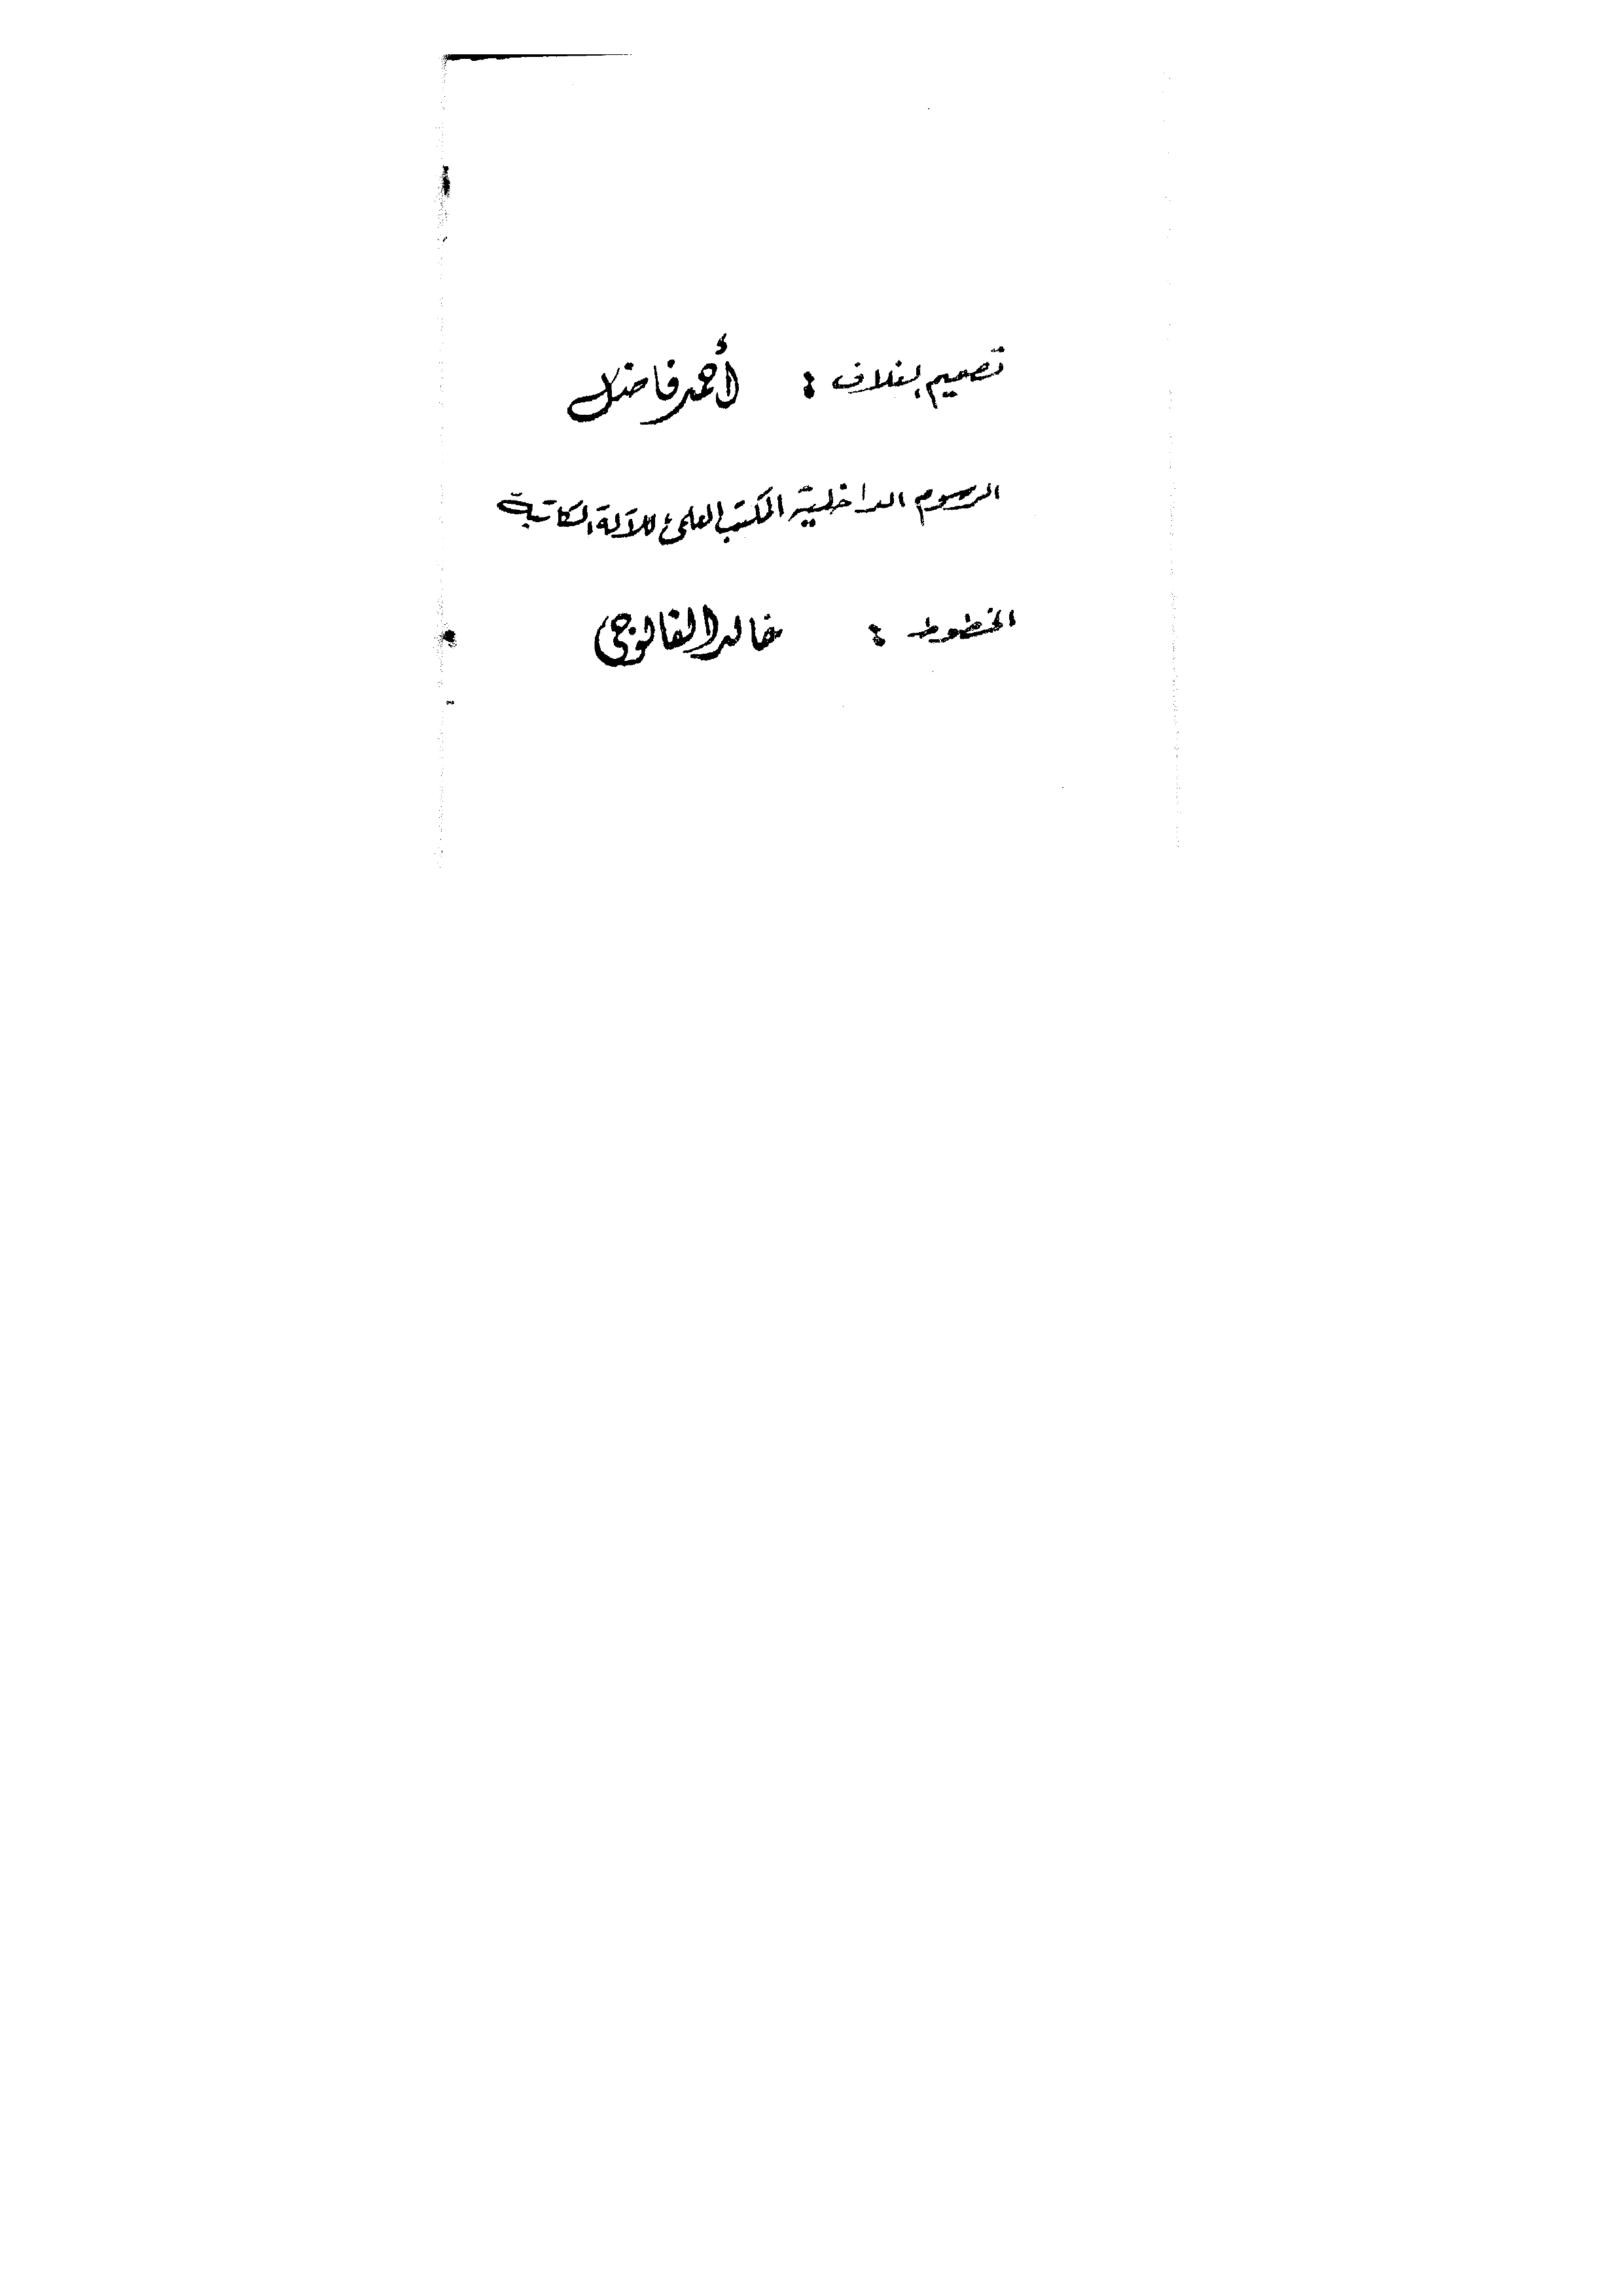 تصميم الغلاف : أحمد فاضل
الرسوم الداخلية المكتب العلمي للآلة الكاتبة
الخطوط : خالد الفالوجي